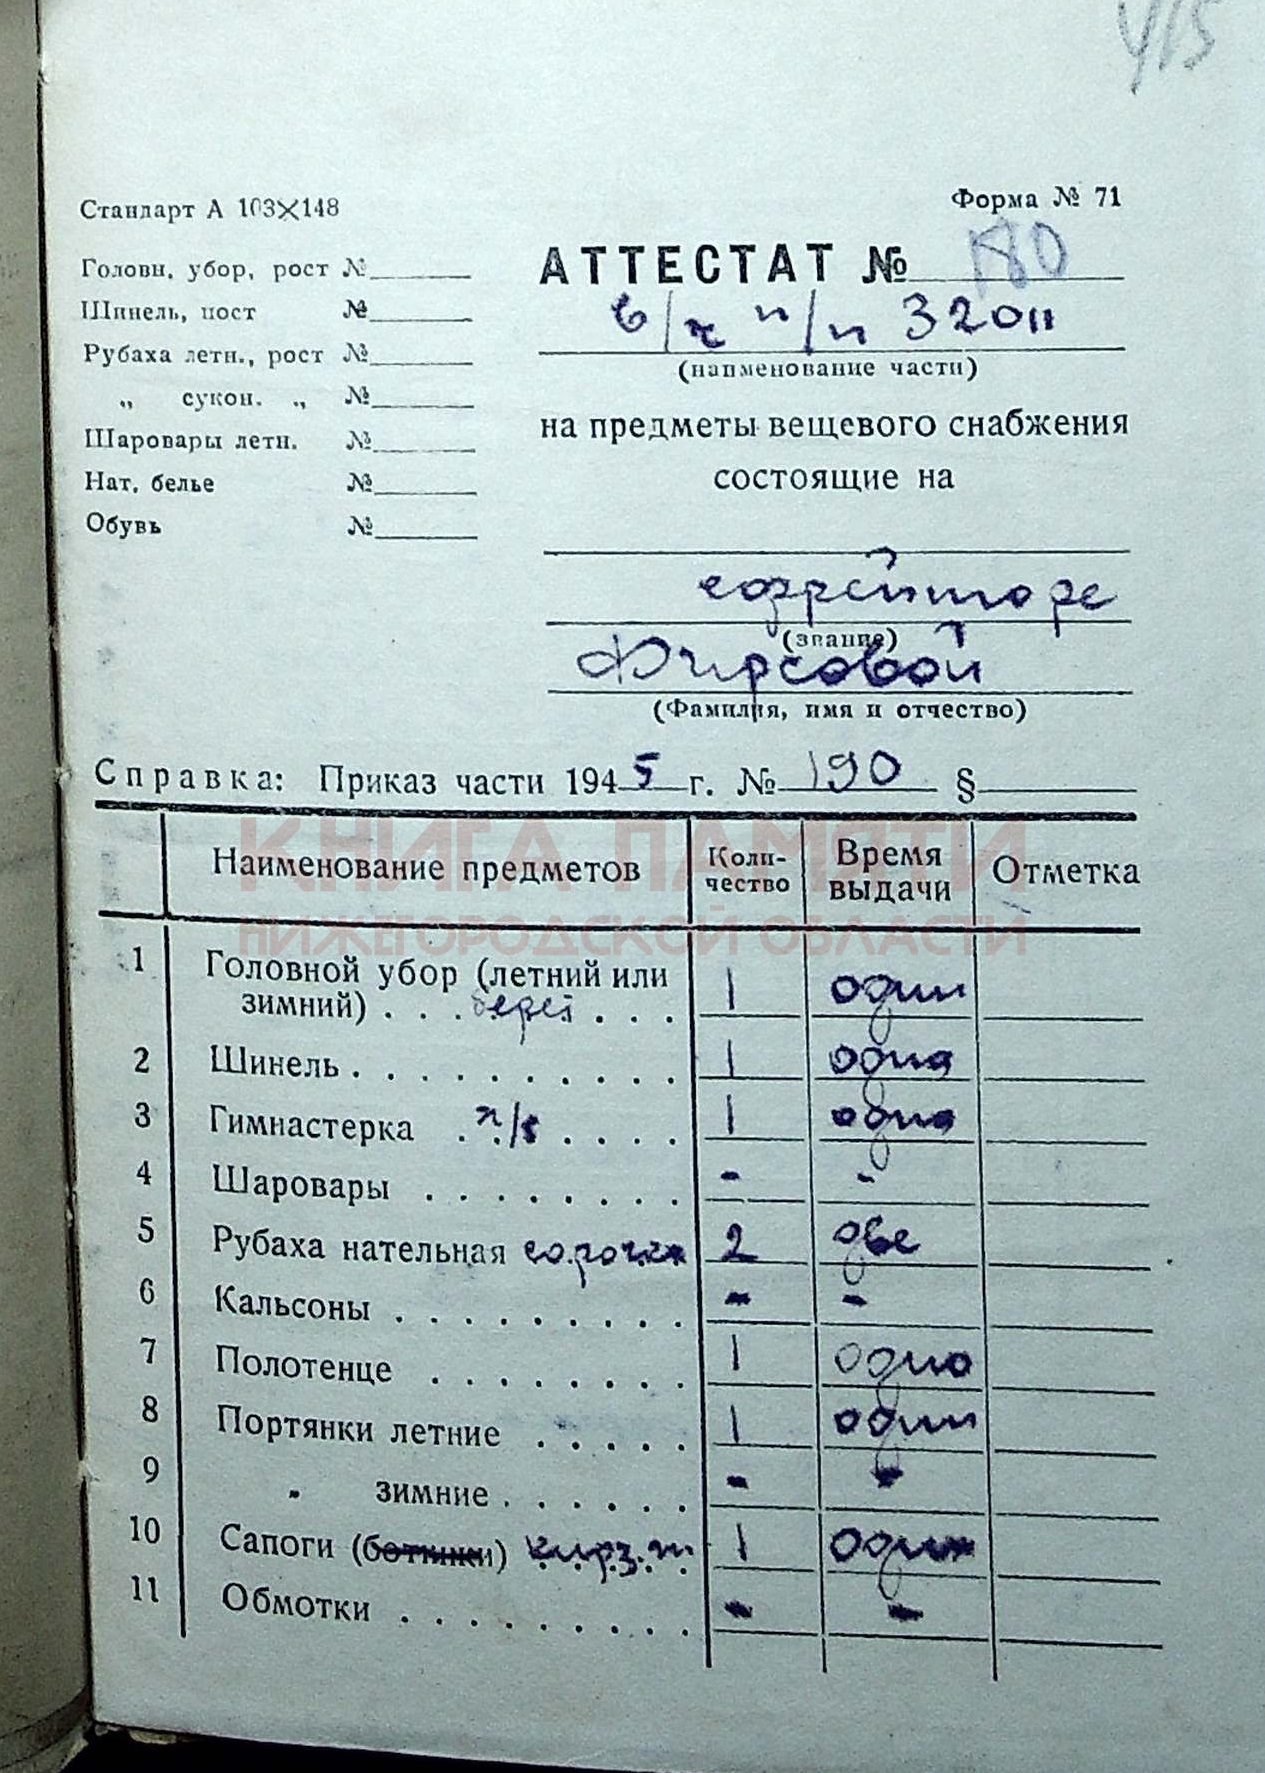 415
Стандарт А 103×148
Форма № 71
Головн. убор, рост №
Шинель, рост №
Рубаха летн., рост №
„ сукон. „ №
Шаровары летн. №
Нат. белье №
Обувь №
АТТЕСТАТ № 180
в/ч п/п 32011
(наименование части)
на предметы вещевого снабжения
состоящие на
ефрейторе
(звание)
Фирсовой
(Фамилия, имя и отчество)
Справка: Приказ части 1945 г. № 190 §
КНИГА ПАМЯТИ
НИЖЕГОРОДСКОЙ ОБЛАСТИ
Наименование предметов Коли-чество Время выдачи Отметка
1 Головной убор (летний или
зимний) . . . берет . . . 1 один
2 Шинель . . . . . . . . . . 1 одна
3 Гимнастерка . х/б . . . . 1 одна
4 Шаровары . . . . . . . . - -
5 Рубаха нательная сорочка 2 две
6 Кальсоны . . . . . . . . . - -
7 Полотенце . . . . . . . . 1 одно
8 Портянки летние . . . . . 1 один
9 „ зимние . . . . . . - -
10 Сапоги (ботинки) кирз. 1 один
11 Обмотки . . . . . . . . . - -